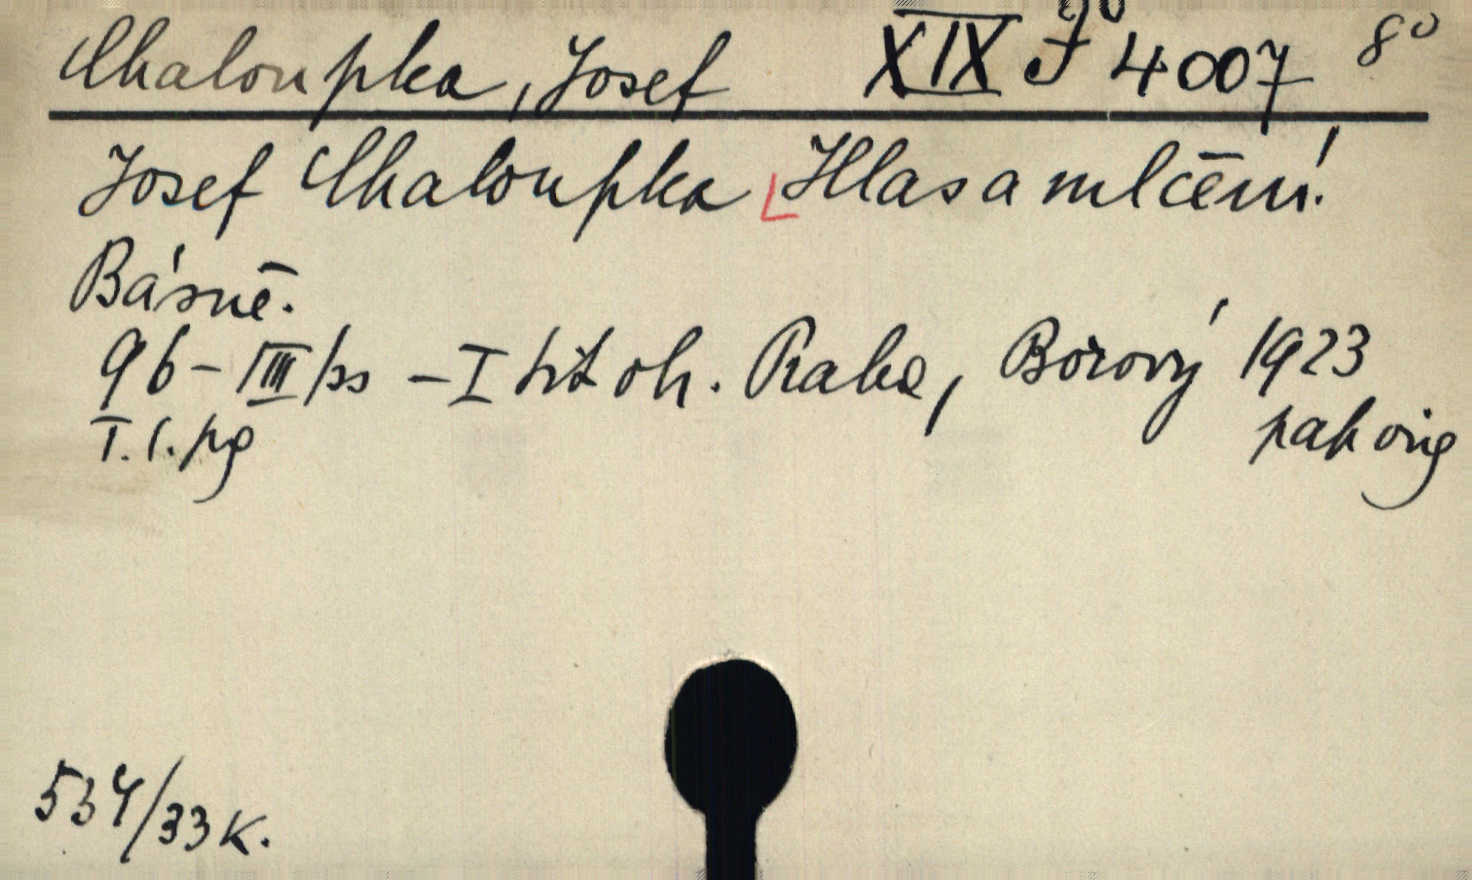 Chaloupka, Josef XIX J 4007 8°
Josef Chaloupka Hlas a mlčení.
Básně.
96 - III /ss - I tit ob. Praha, Borový 1923
I. č. pg pap orig
534/33 K.